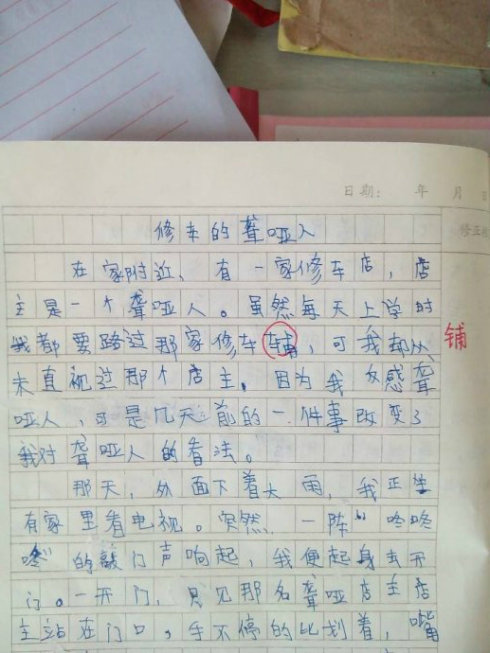 日期: 年 月 日
修正栏
修车的聋哑人
在家附近，有一家修车店，店
主是一个聋哑人。虽然每天上学时
我都要路过那家修车，可我却从
铺
未直视过那个店主，因为我反感聋
哑人，可是几天前的一件事改变了
我对聋哑人的看法。
那天，外面下着大雨，我正坐
有家里看电视。突然，一阵“咚咚
咚”的敲门声响起，我便起身去开
门。一开门，只见那名聋哑店主店
主站在门口，手不停的比划着，嘴